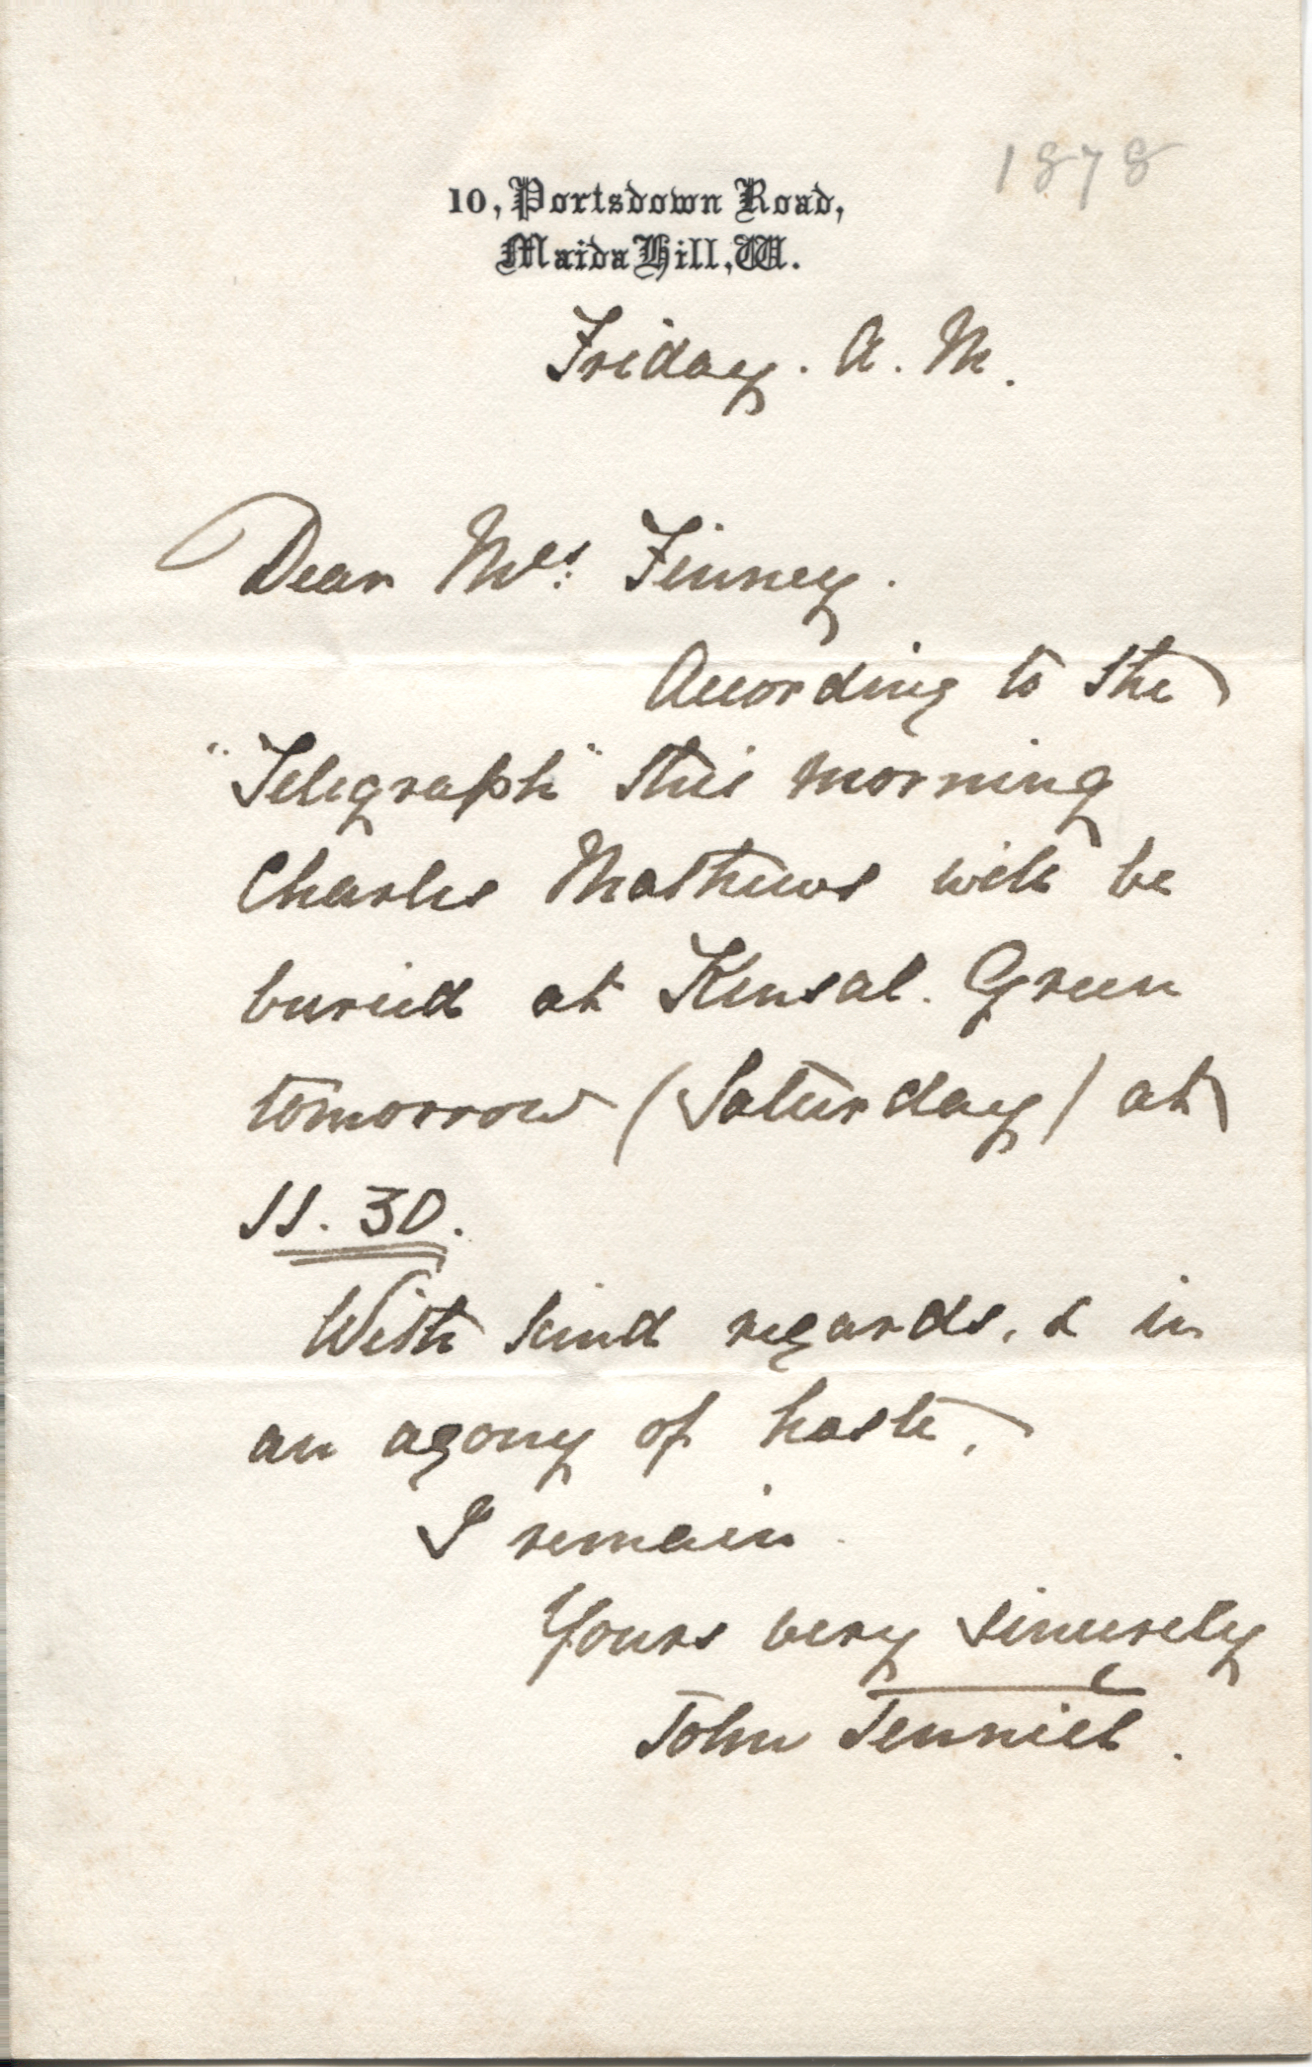 1878
10, Portsdown Road,
Maida Hill, W.
Friday. A. M.
Dear Mrs. Finney.
According to the
"Telegraph" this morning
Charles Mathews will be
buried at Kensal. Green
tomorrow (Saturday) at
11. 30.
With kind regards, & in
an agony of haste,
I remain.
Yours very sincerely
John Tenniel.